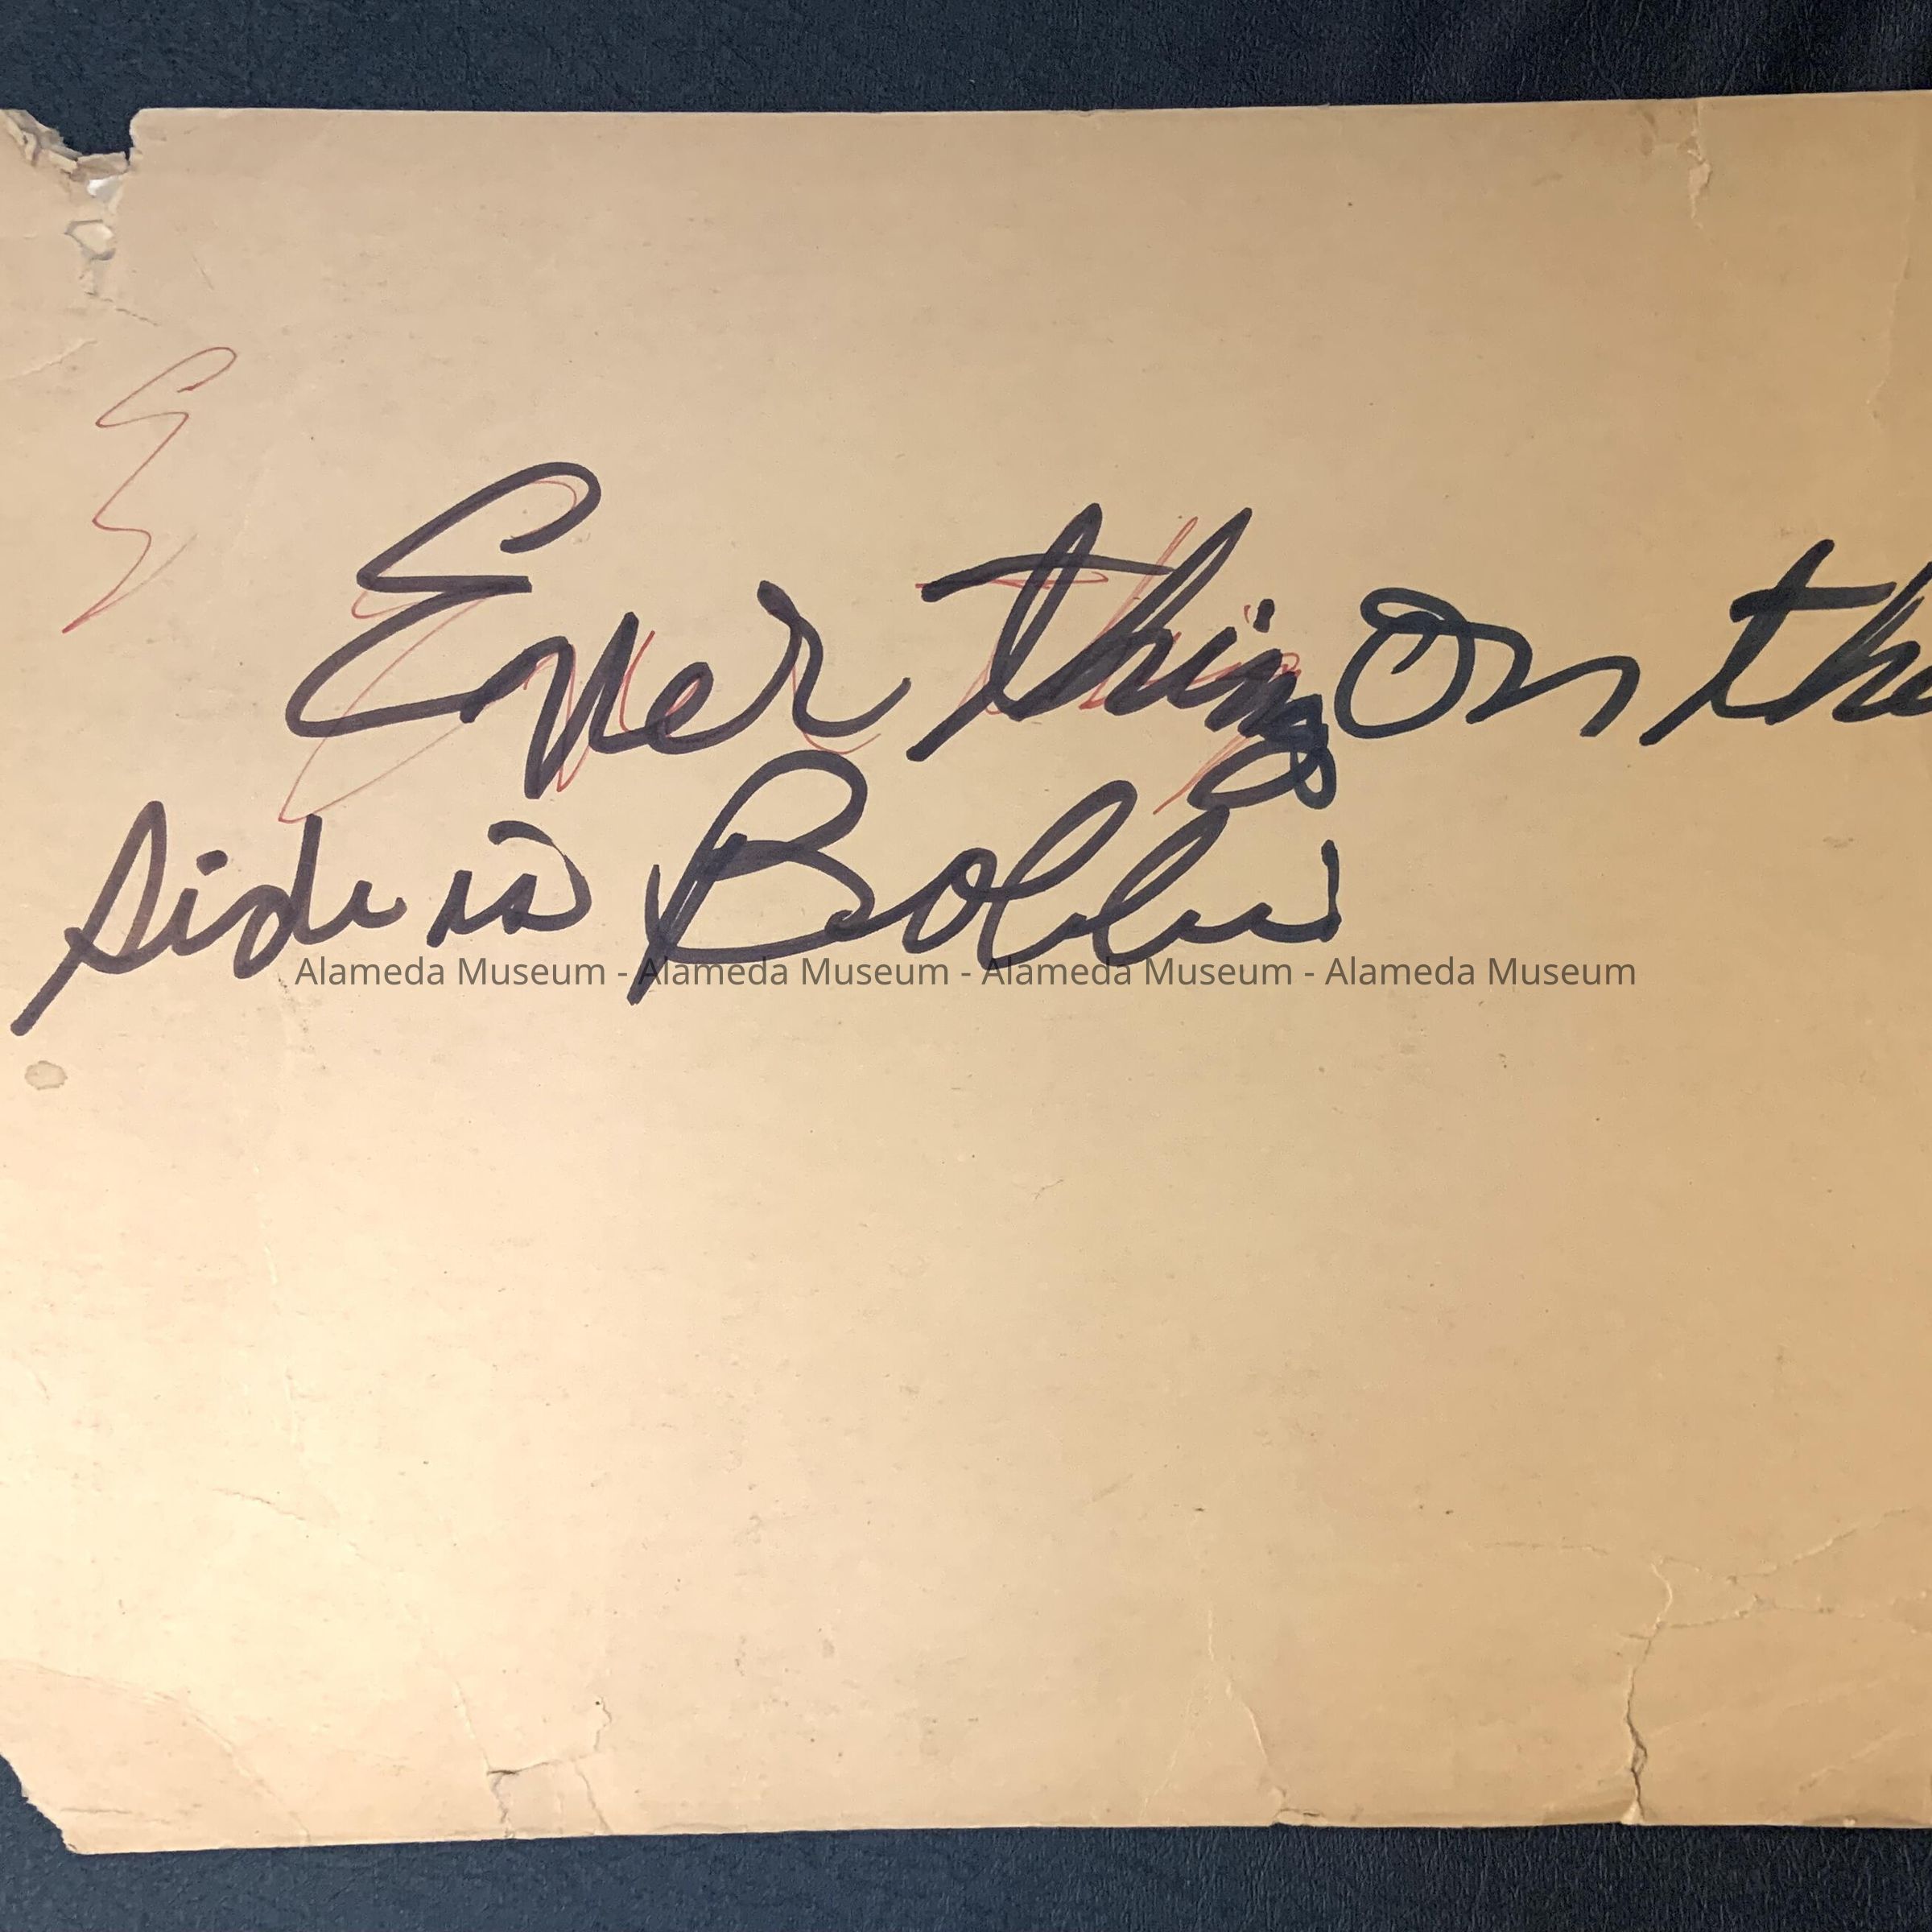 Ever thing on the
side is Bobbi
Alameda Museum - Alameda Museum - Alameda Museum - Alameda Museum